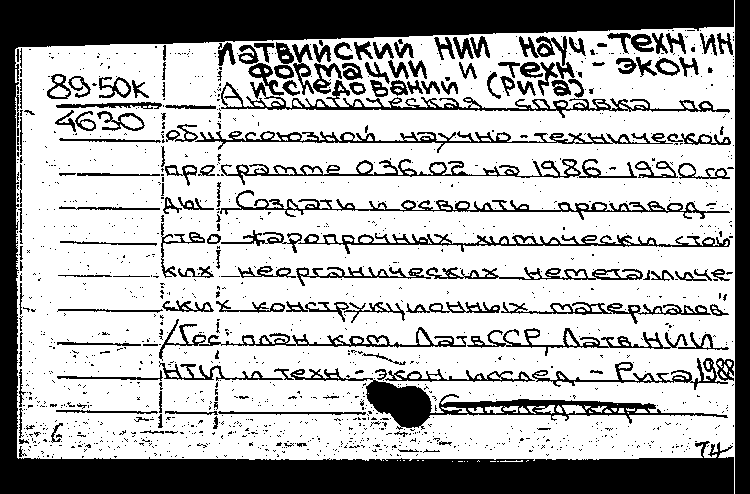 ЛАТВИЙСКИЙ НИИ НАУЧ.-ТЕХН. ИН
ФОРМАЦИИ И ТЕХН.-ЭКОН.
ИССЛЕДОВАНИЙ (РИГА).
89-50к
4630
Аналитическая справка по
общесоюзной научно-технической
программе 0.36.02 на 1986-1990 го-
ды „Создать и освоить производ-
ство жаропрочных, химически стой
ких неорганических неметалличе-
ских конструкционных материалов"
/Гос. план. ком. ЛатвССР, Латв. НИИ
НТИ и техн.-экон. исслед. - Рига, 1988
См. след. карт.
6
74